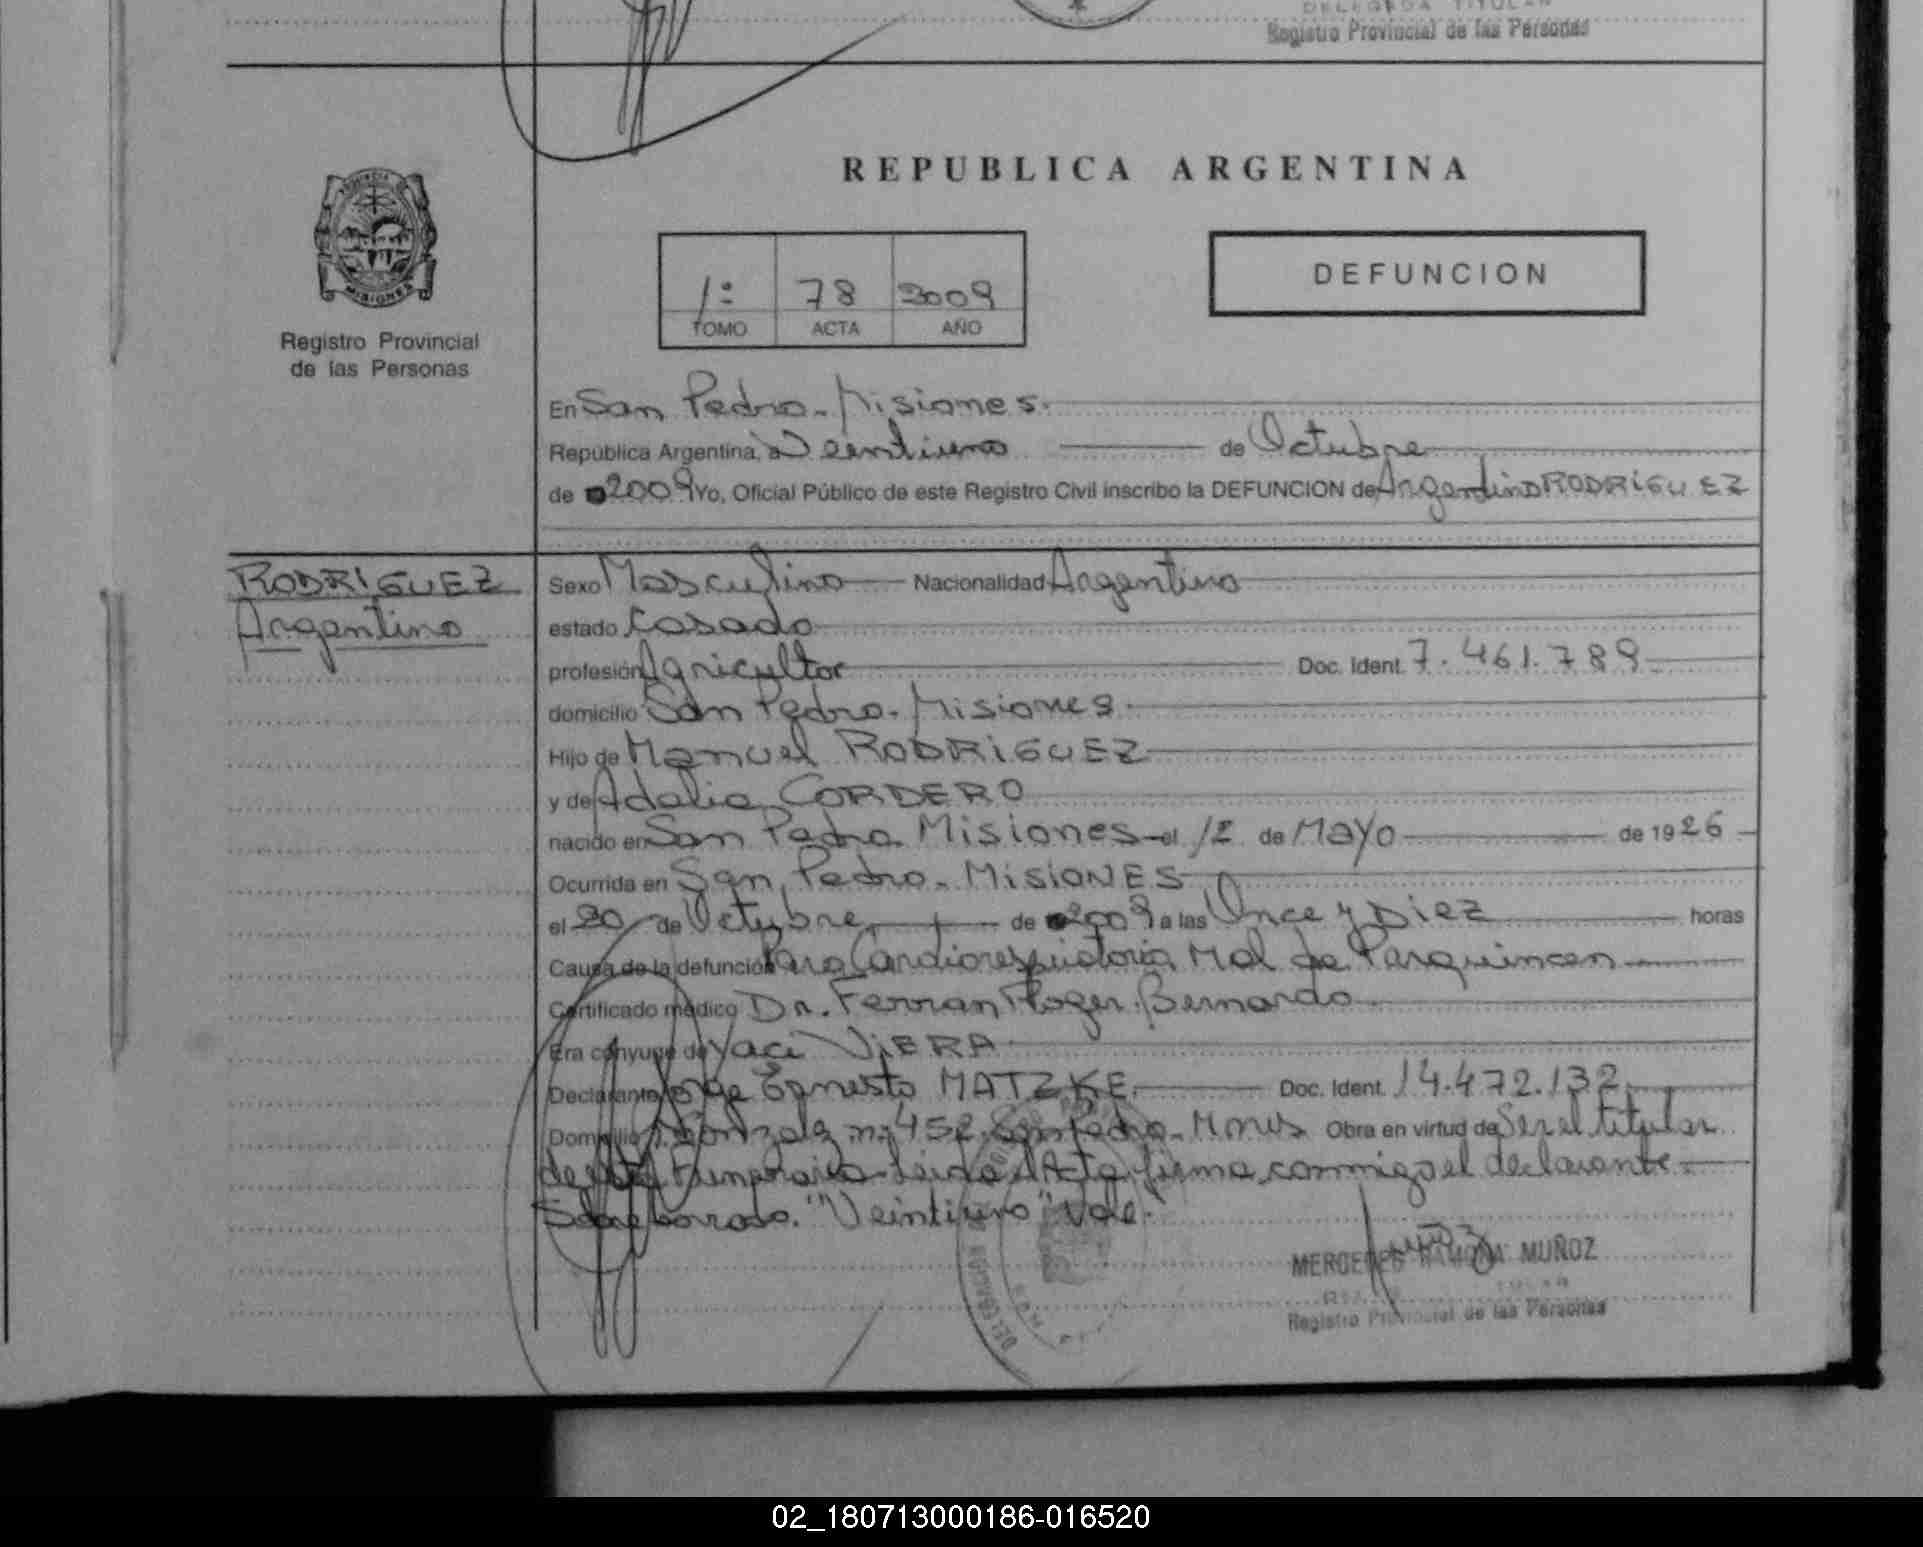 DELEGADA TITULAR
Registro Provincial de las Personas
REPUBLICA ARGENTINA
PROVINCIA DE
MISIONES
Registro Provincial
de las Personas
1º 78 2009
TOMO ACTA AÑO
DEFUNCION
En San Pedro - Misiones.
República Argentina, a Veintiuno de Octubre
de 2009 Yo, Oficial Público de este Registro Civil inscribo la DEFUNCION de Argentino RODRIGUEZ
RODRIGUEZ
Argentino
Sexo Masculino Nacionalidad Argentino
estado Casado
profesión Agricultor Doc. Ident. 7.461.789
domicilio San Pedro - Misiones.
Hijo de Manuel RODRIGUEZ
y de Adalia CORDERO
nacido en San Pedro Misiones el 12 de Mayo de 1926
Ocurrida en San Pedro - MISIONES
el 20 de Octubre de 2009 a las Once y Diez horas
Causa de la defunción Paro Cardiorespiratorio Mal de Parquinson
Certificado médico Dr. Ferran Roger Bernardo
Era cónyuge de Yaci VIERA
Declarante Jorge Ernesto MATZKE. Doc. Ident. 14.472.132
Domicilio Gonzalez nº 452 San Pedro - Mnes Obra en virtud de Ser el titular
de la Funeraria Leida el Acta firma conmigo el declarante.
Sobreborrado. "Veintiuno" Vale.
MERCEDES RAMONA MUÑOZ
Registro Provincial de las Personas
DELEGACION
02_180713000186-016520